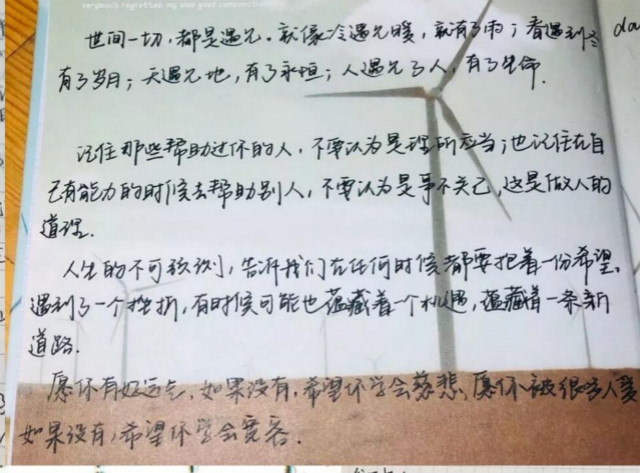 verymuch regretted my
世间一切，都是遇见。就像冷遇见暖，就有了雨；春遇到冬
有了岁月；天遇见地，有了永恒；人遇见了人，有了生命．
记住那些帮助过你的人，不要认为是理所应当；也记住在自
己有能力的时候去帮助别人，不要认为是事不关己，这是做人的
道理．
人生的不可预测，告诉我们在任何时候都要抱着一份希望。
遇到了一个挫折，有时候可能也蕴藏着一个机遇，蕴藏着一条新
道路．
愿你有好运气，如果没有，希望你学会慈悲，愿你被很多人爱
如果没有，希望你学会宽容．